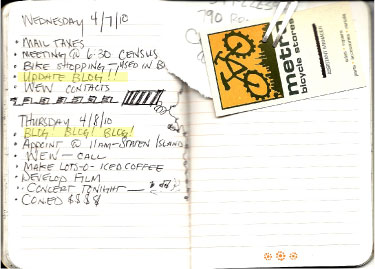 WEDNESDAY 4/7/10
• MAIL TAXES
• MEETING @ 6:30 CENSUS
• BIKE SHOPPING - USED IN B
• UPDATE BLOG!!
• WEW CONTACTS
THURSDAY 4/8/10
• BLOG! BLOG! BLOG!
• APPOINT @ 11AM - STATEN ISLAND
• WEW - CALL
• MAKE LOTS-O-ICED COFFEE
• DEVELOP FILM
• CONCERT TONIGHT
• CONED $$$$
790 RO
metro
bicycle stores